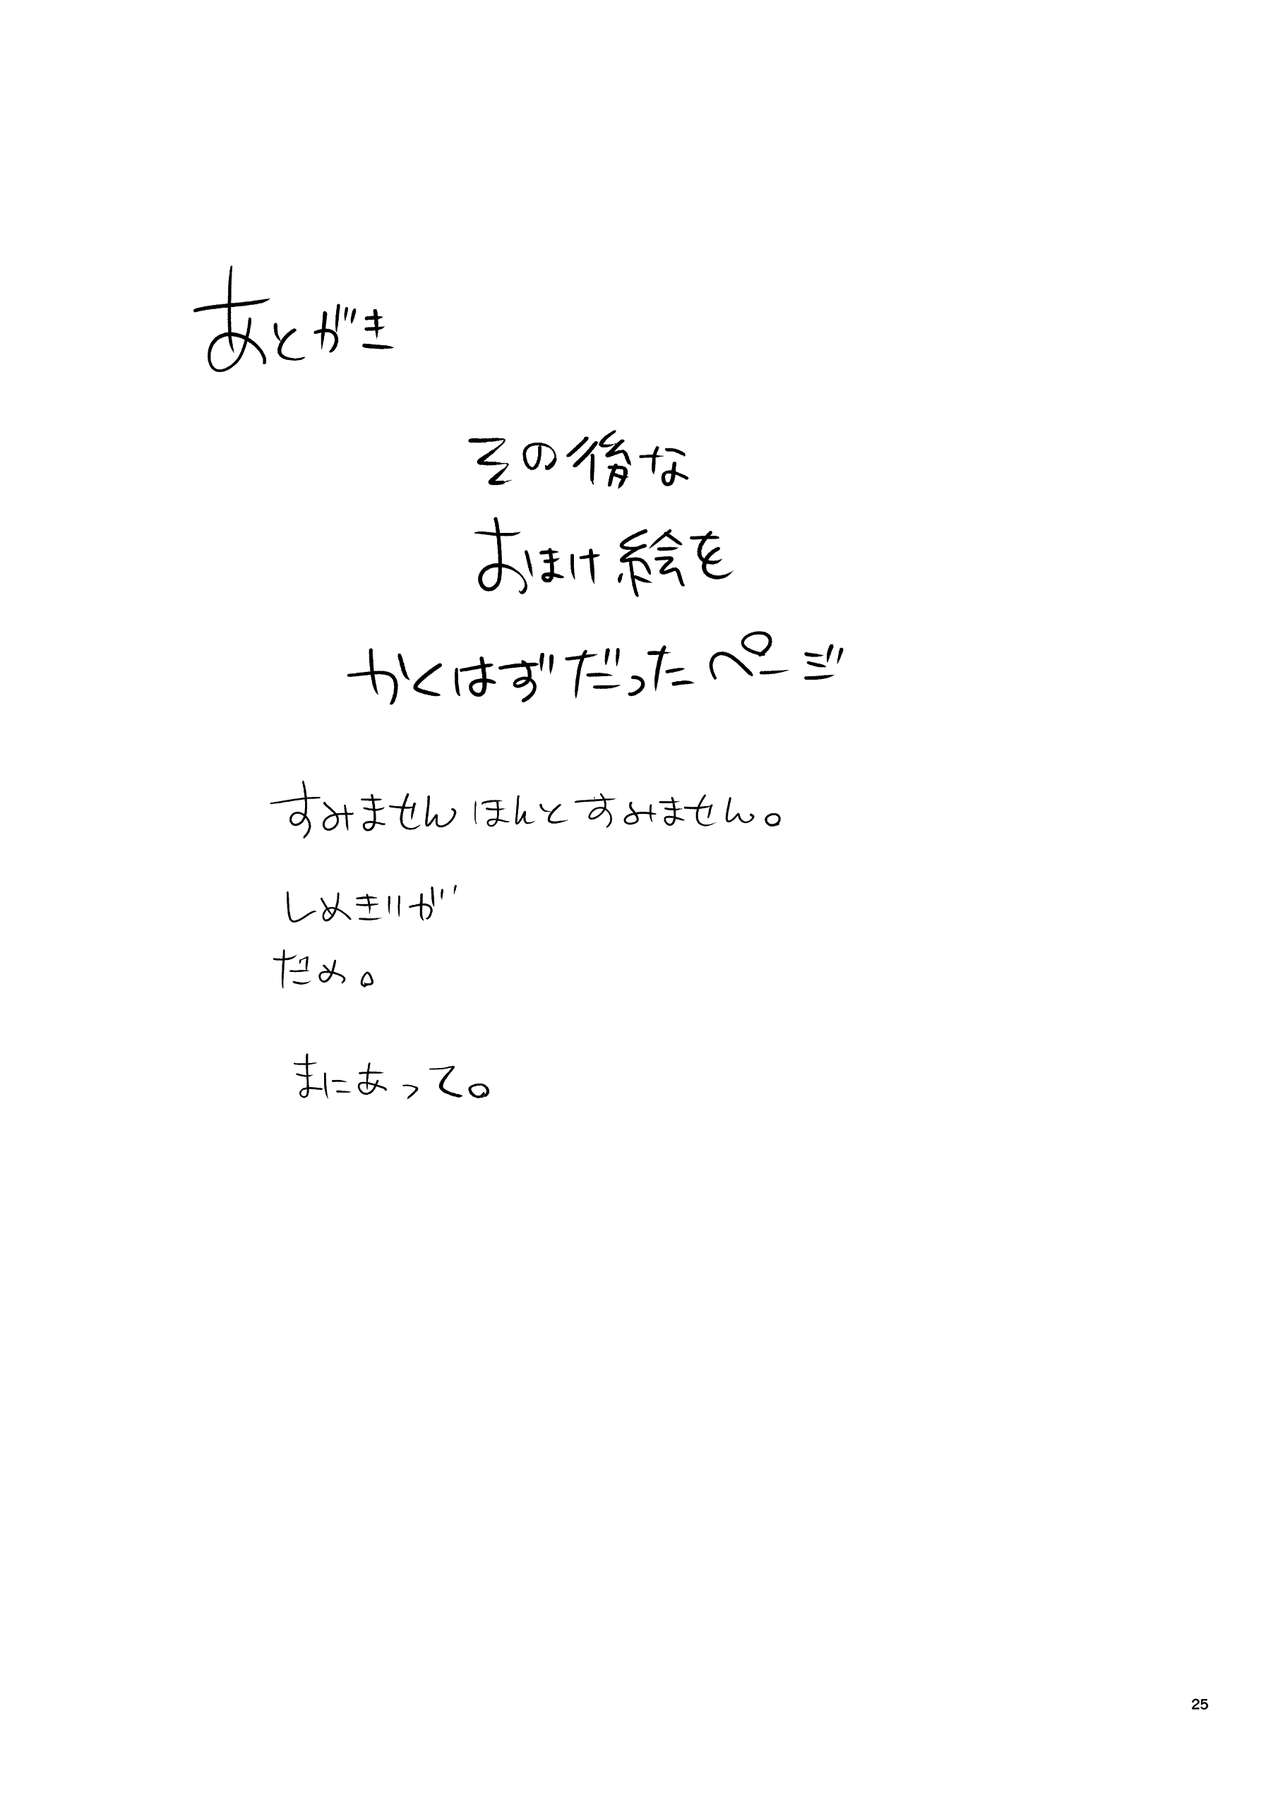 あとがき
その後な
おまけ絵を
かくはずだったページ
すみません ほんと すみません。
しめきりが
だめ。
まにあって。
25